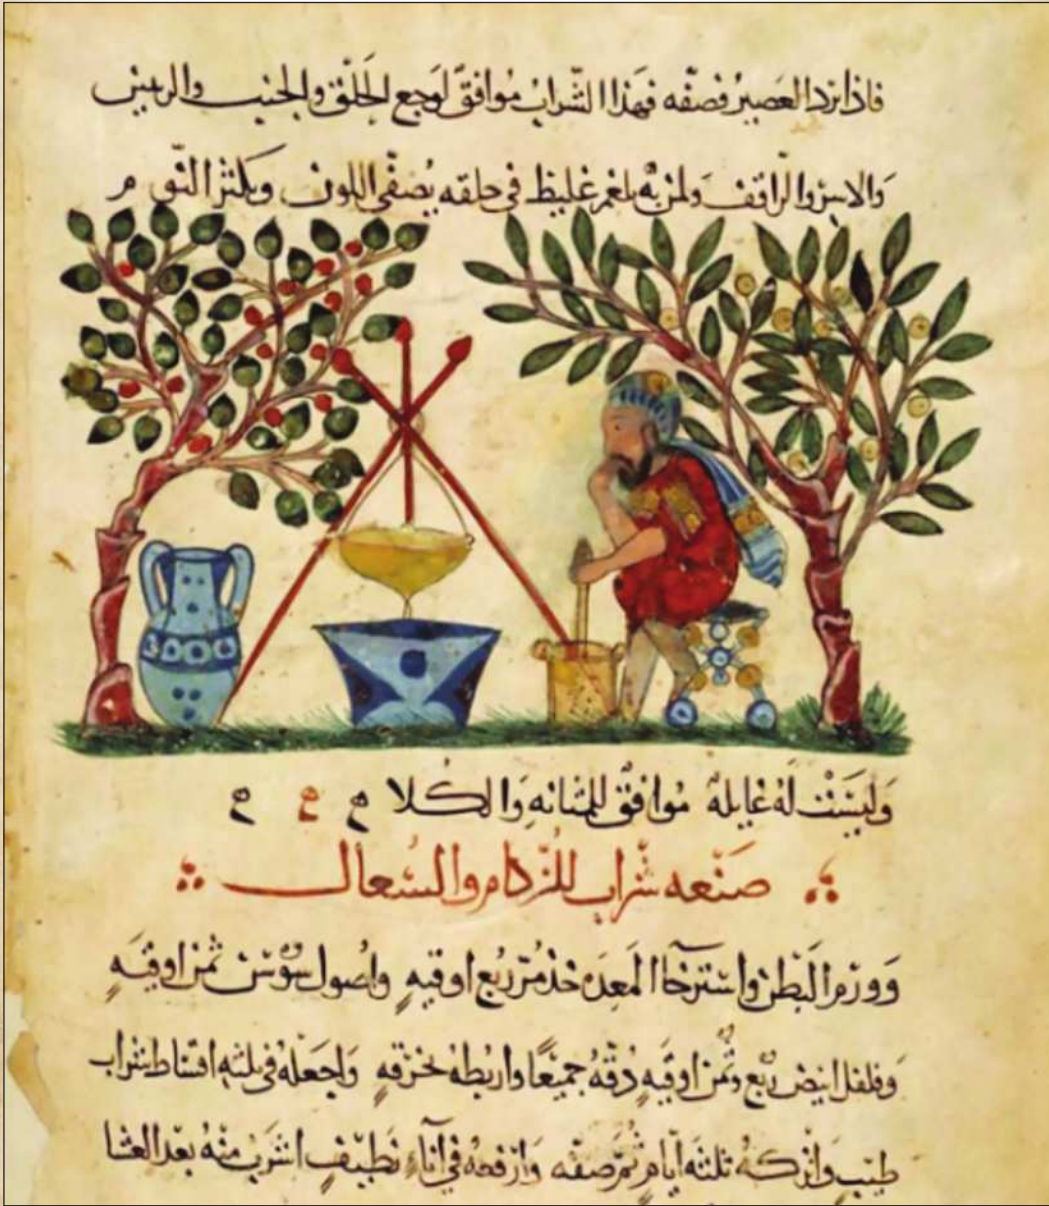 فاذا برد العصير فصفه فهذا الشراب موافق لوجع الحلق والجنب والرئيتين
والاسر والراقف ولمن به بلغم غليظ في حلقه يصفي اللون ويكثر النوم
وليست له غايله موافق للمثانه والكلا
صنعه شراب للزكام والسعال
وورم البطن واسترخا المعده خذ مر ربع اوقيه واصول سوسن ثمن اوقيه
وفلفل ابيض ربع وثمن اوقيه دقه جميعا واربطه بخرقه واجعله في ثلثه اقساط شراب
طيب واتركه ثلثه ايام ثم صفه وارفعه في اناء نظيف اشرب منه بعد العشا